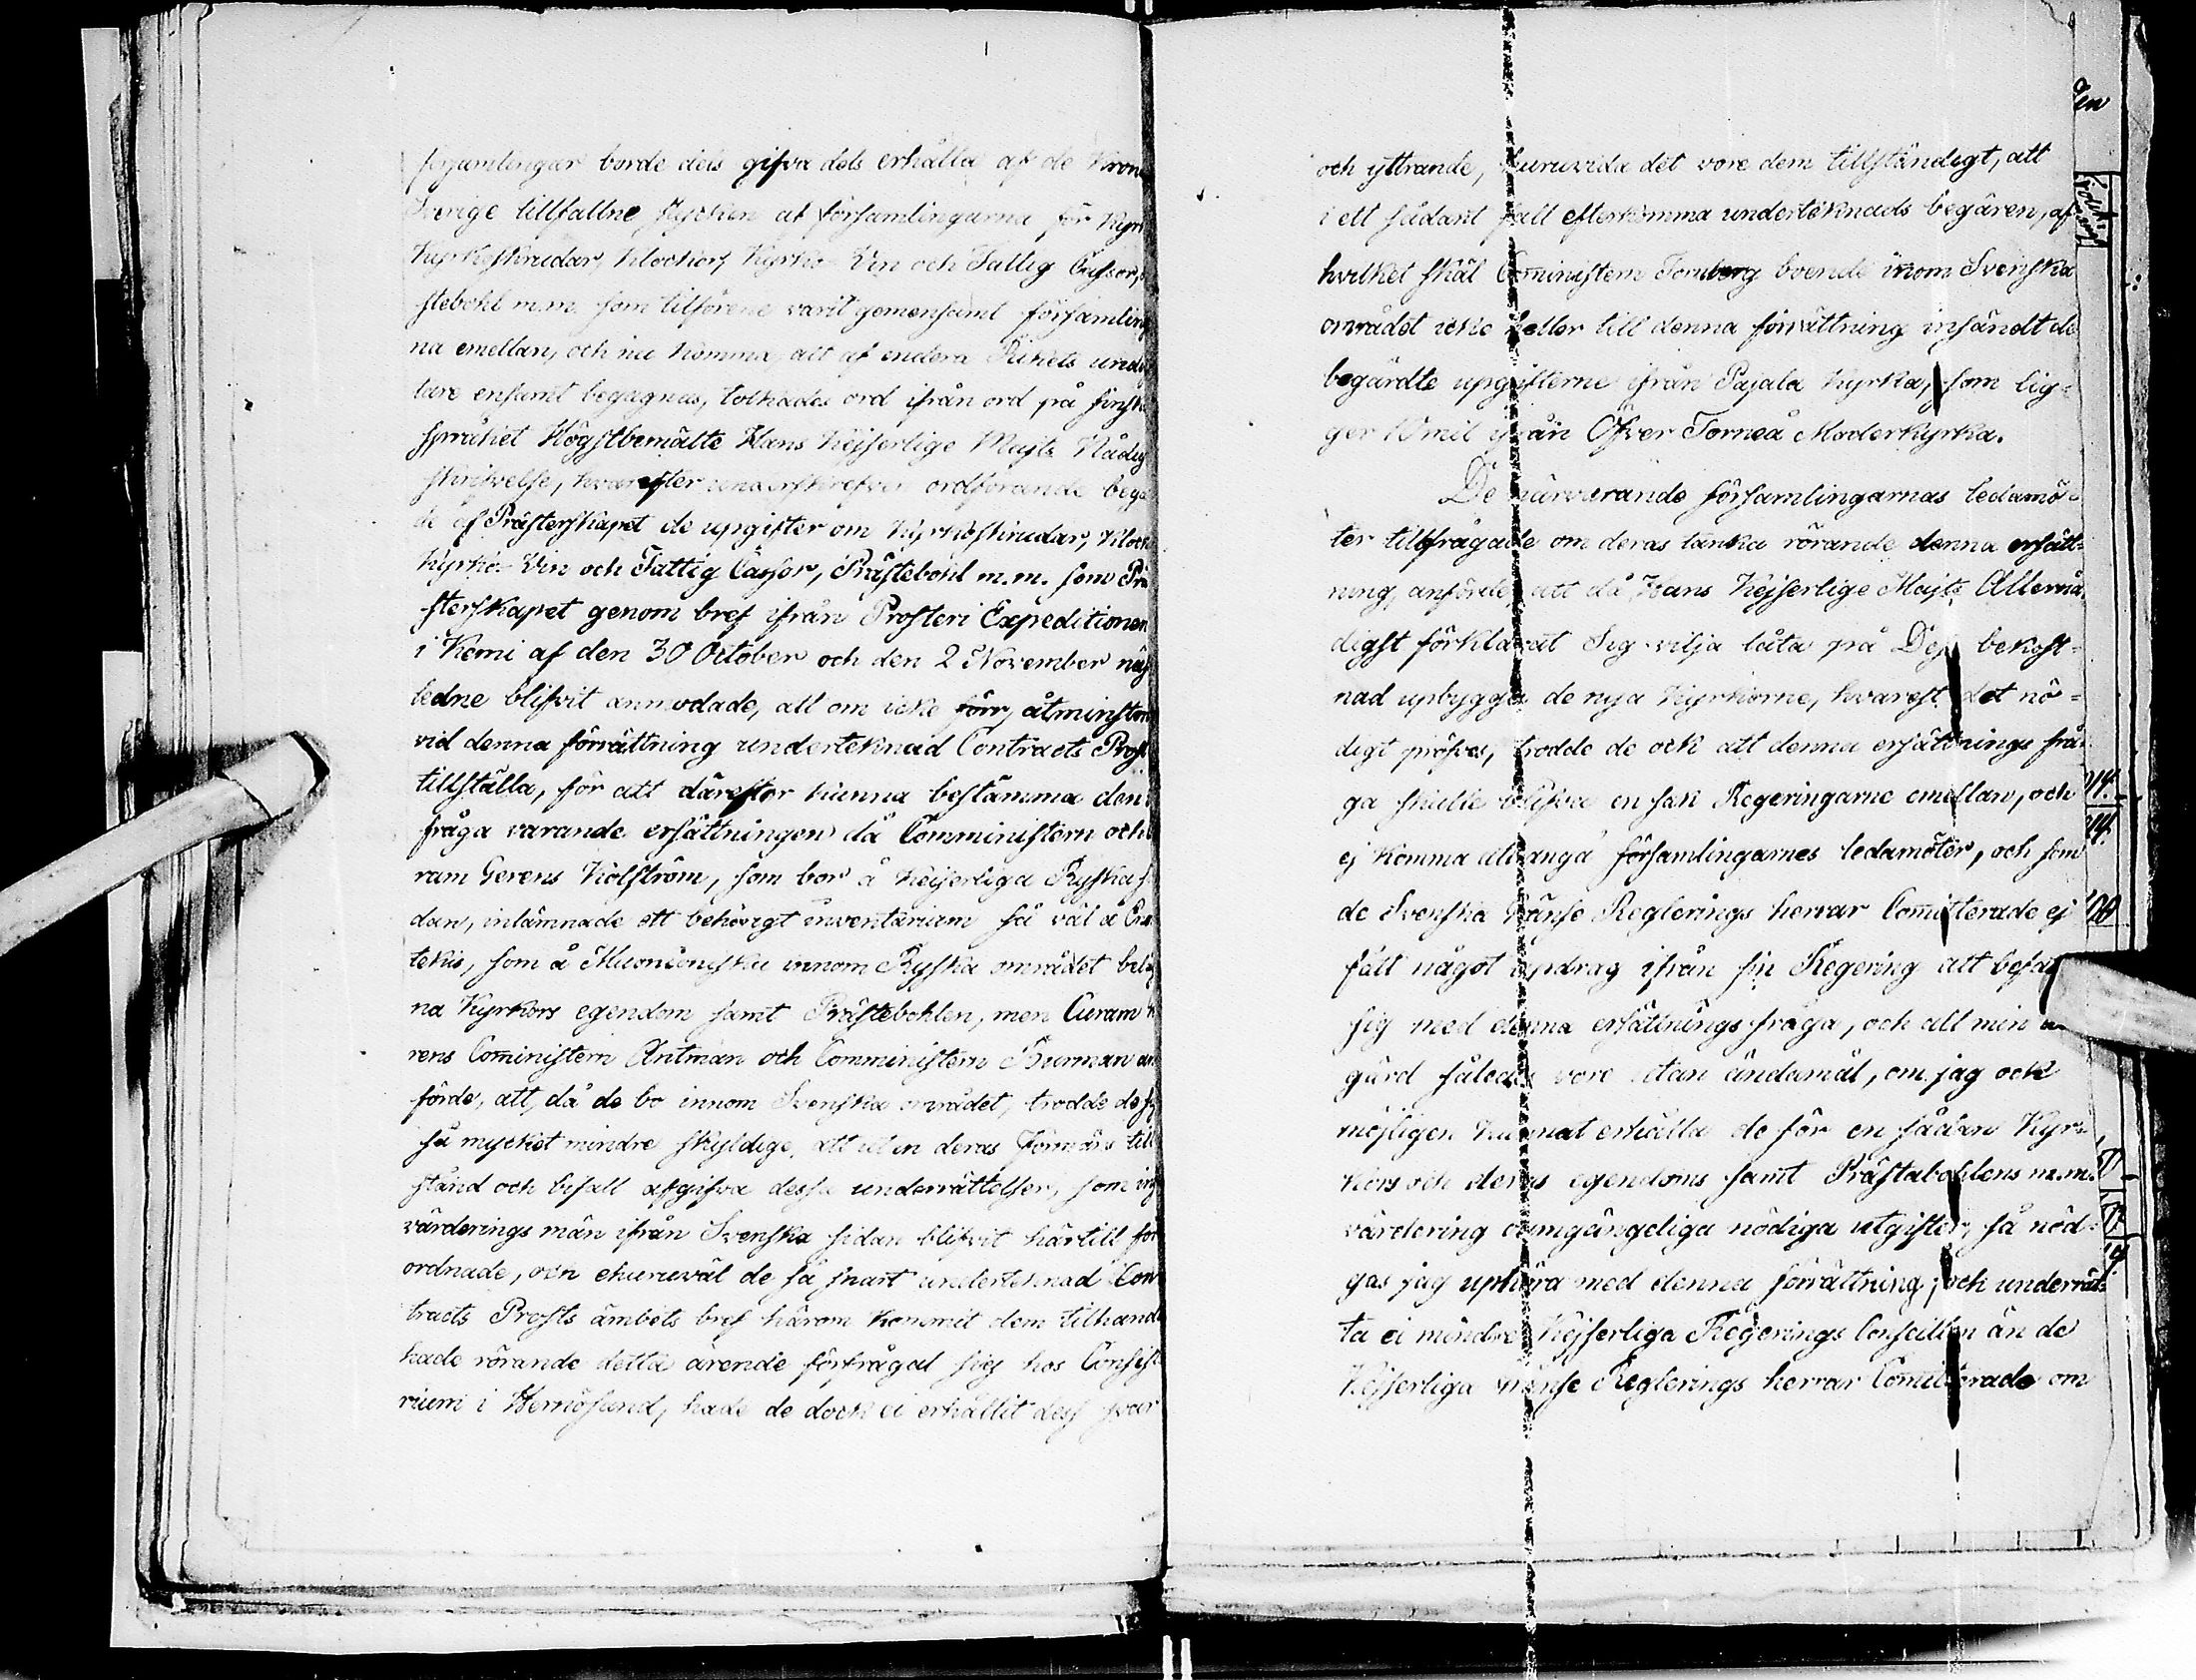 församlingar borde dels gifva dels erhålla af de Kron
Sverige tillfallne stycken af församlingarna för Kyr
Kyrkoskrudar, Klockor, Kyrko- Vin och Fattig Cassor,
stebohl m.m. som tilförene varit gemensamt församling
na emellan, och nu komma att af endera Rikets unde
tare ensamt begagnas, tolkades ord ifrån ord på finska
språket Högstbemälte Hans Kejserlige Majts Nådig
skrifvelse, hvarefter underskrefven ordförande begä
de af Prästerskapet de upgifter om Kyrkoskrudar, Klock
Kyrko- Vin och Fattig Cassor, Prästebohl m.m. som Prä
sterskapet genom bref ifrån Prosteri Expeditionen
i Kemi af den 30 October och den 2 November näs
ledne blifvit anmodade, att om icke förr, åtminston
vid denna förrättning underteknad Contracts Prost
tillställa, för att därefter kunna bestämma den i
fråga varande ersättningen då Comministern och
ram Gerens Kolström, som bor å Keijserliga Ryska s
dan, inlämnade ett behörigt inventarium så väl å Eno
tekis, som å Muonioniska innom Ryska området belä
na Kyrkors egendom samt Prästebohlen, men Curam
rens Coministern Antman och Comministern Burman an
förde, att, då de bo innom Svenska området, trodde de sig
så mycket mindre skyldige, att utan deras Förmäns till
stånd och befall afgifva dessa underrättelser, som in
värderings män ifrån Svenska sidan blifvit härtill för
ordnade, och ehuruväl de så snart undertecknad Con
tracts Prosts ämbets bref härom kommit dem tilhanda
hade rörande detta ärende förfrågat sig hos Consist
rium i Hernösand, hade de dock ei erhållit dess svar
och yttrande, huruvida det vore dem tillständigt, att
i ett sådant fall efterkomma underteknads begären, af
hvilket skäl Coministern Tornberg boende inom Svenska
området icke heller till denna förrättning insändt de
begärdte upgifterne ifrån Pajala Kyrka, som lig-
ger 10 mil ifrån Öfver Torneå Moderkyrka.
De närvarande församlingarnas ledamö-
ter tillfrågade om deras tanka rörande denna ersätt-
ning, anförde, att då Hans Kejserlige Majts Allernå
digst förklarat Sig vilja låta på Dess bekost-
nad upbygga de nya Kyrkorne, hvarest det nö-
digt pröfves, trodde de ock att denna ersättnings frå-
ga skulle blifva en sak Regeringarne emellan, och
ej komma at angå församlingarnes ledamöter, och som
de Svenska Gränse Reglerings herrar Comitterade ej
fått något updrag ifrån sin Regering att befat
sig med denna ersättnings fråga, och all min
gärd således vore utan ändamål, om jag ock
möjligen kunnat erhålla de för en sådan Kyr-
kors och deras egendoms samt Prästabohlens m.m.
värdering oumgängeliga nödiga utgifter, så nöd-
gas jag uphöra med denna förrättning, och underrät-
ta ei mindre Kejserliga Regerings Conseillen än de
Kejserliga Gränse Reglerings herrar Comitterade om